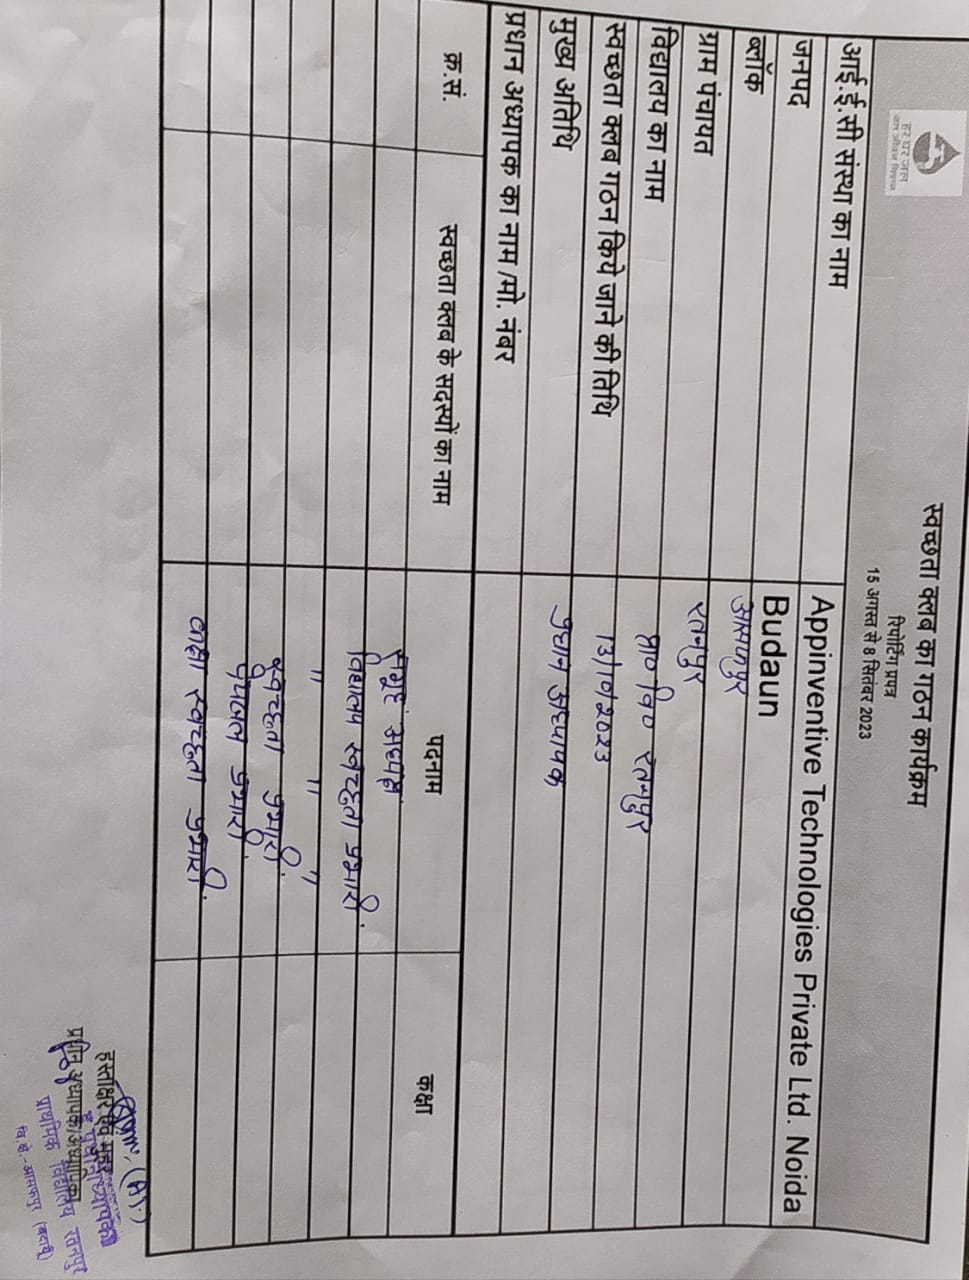 हर घर जल
जल जीवन मिशन
स्वच्छता क्लब का गठन कार्यक्रम
रिपोर्टिंग प्रपत्र
15 अगस्त से 8 सितंबर 2023
आई.ई.सी संस्था का नाम Appinventive Technologies Private Ltd. Noida
जनपद Budaun
ब्लॉक आसफपुर
ग्राम पंचायत रतनपुर
विद्यालय का नाम प्रा० वि० रतनपुर
स्वच्छता क्लब गठन किये जाने की तिथि
मुख्य अतिथि प्रधान अध्यापक
प्रधान अध्यापक का नाम /मो. नंबर
क्र.सं. स्वच्छता क्लब के सदस्यों का नाम पदनाम कक्षा
विद्यालय स्वच्छता प्रभारी.
" " "
स्वच्छता प्रभारी.
पेयजल प्रभारी.
स्वच्छता प्रभारी.
हस्ताक्षर एवं मुहर
प्रधान अध्यापक/अध्यापिका
प्राथमिक विद्यालय रतनपुर